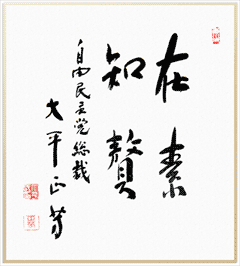 在素
知贅
自由民主党総裁
大平正芳